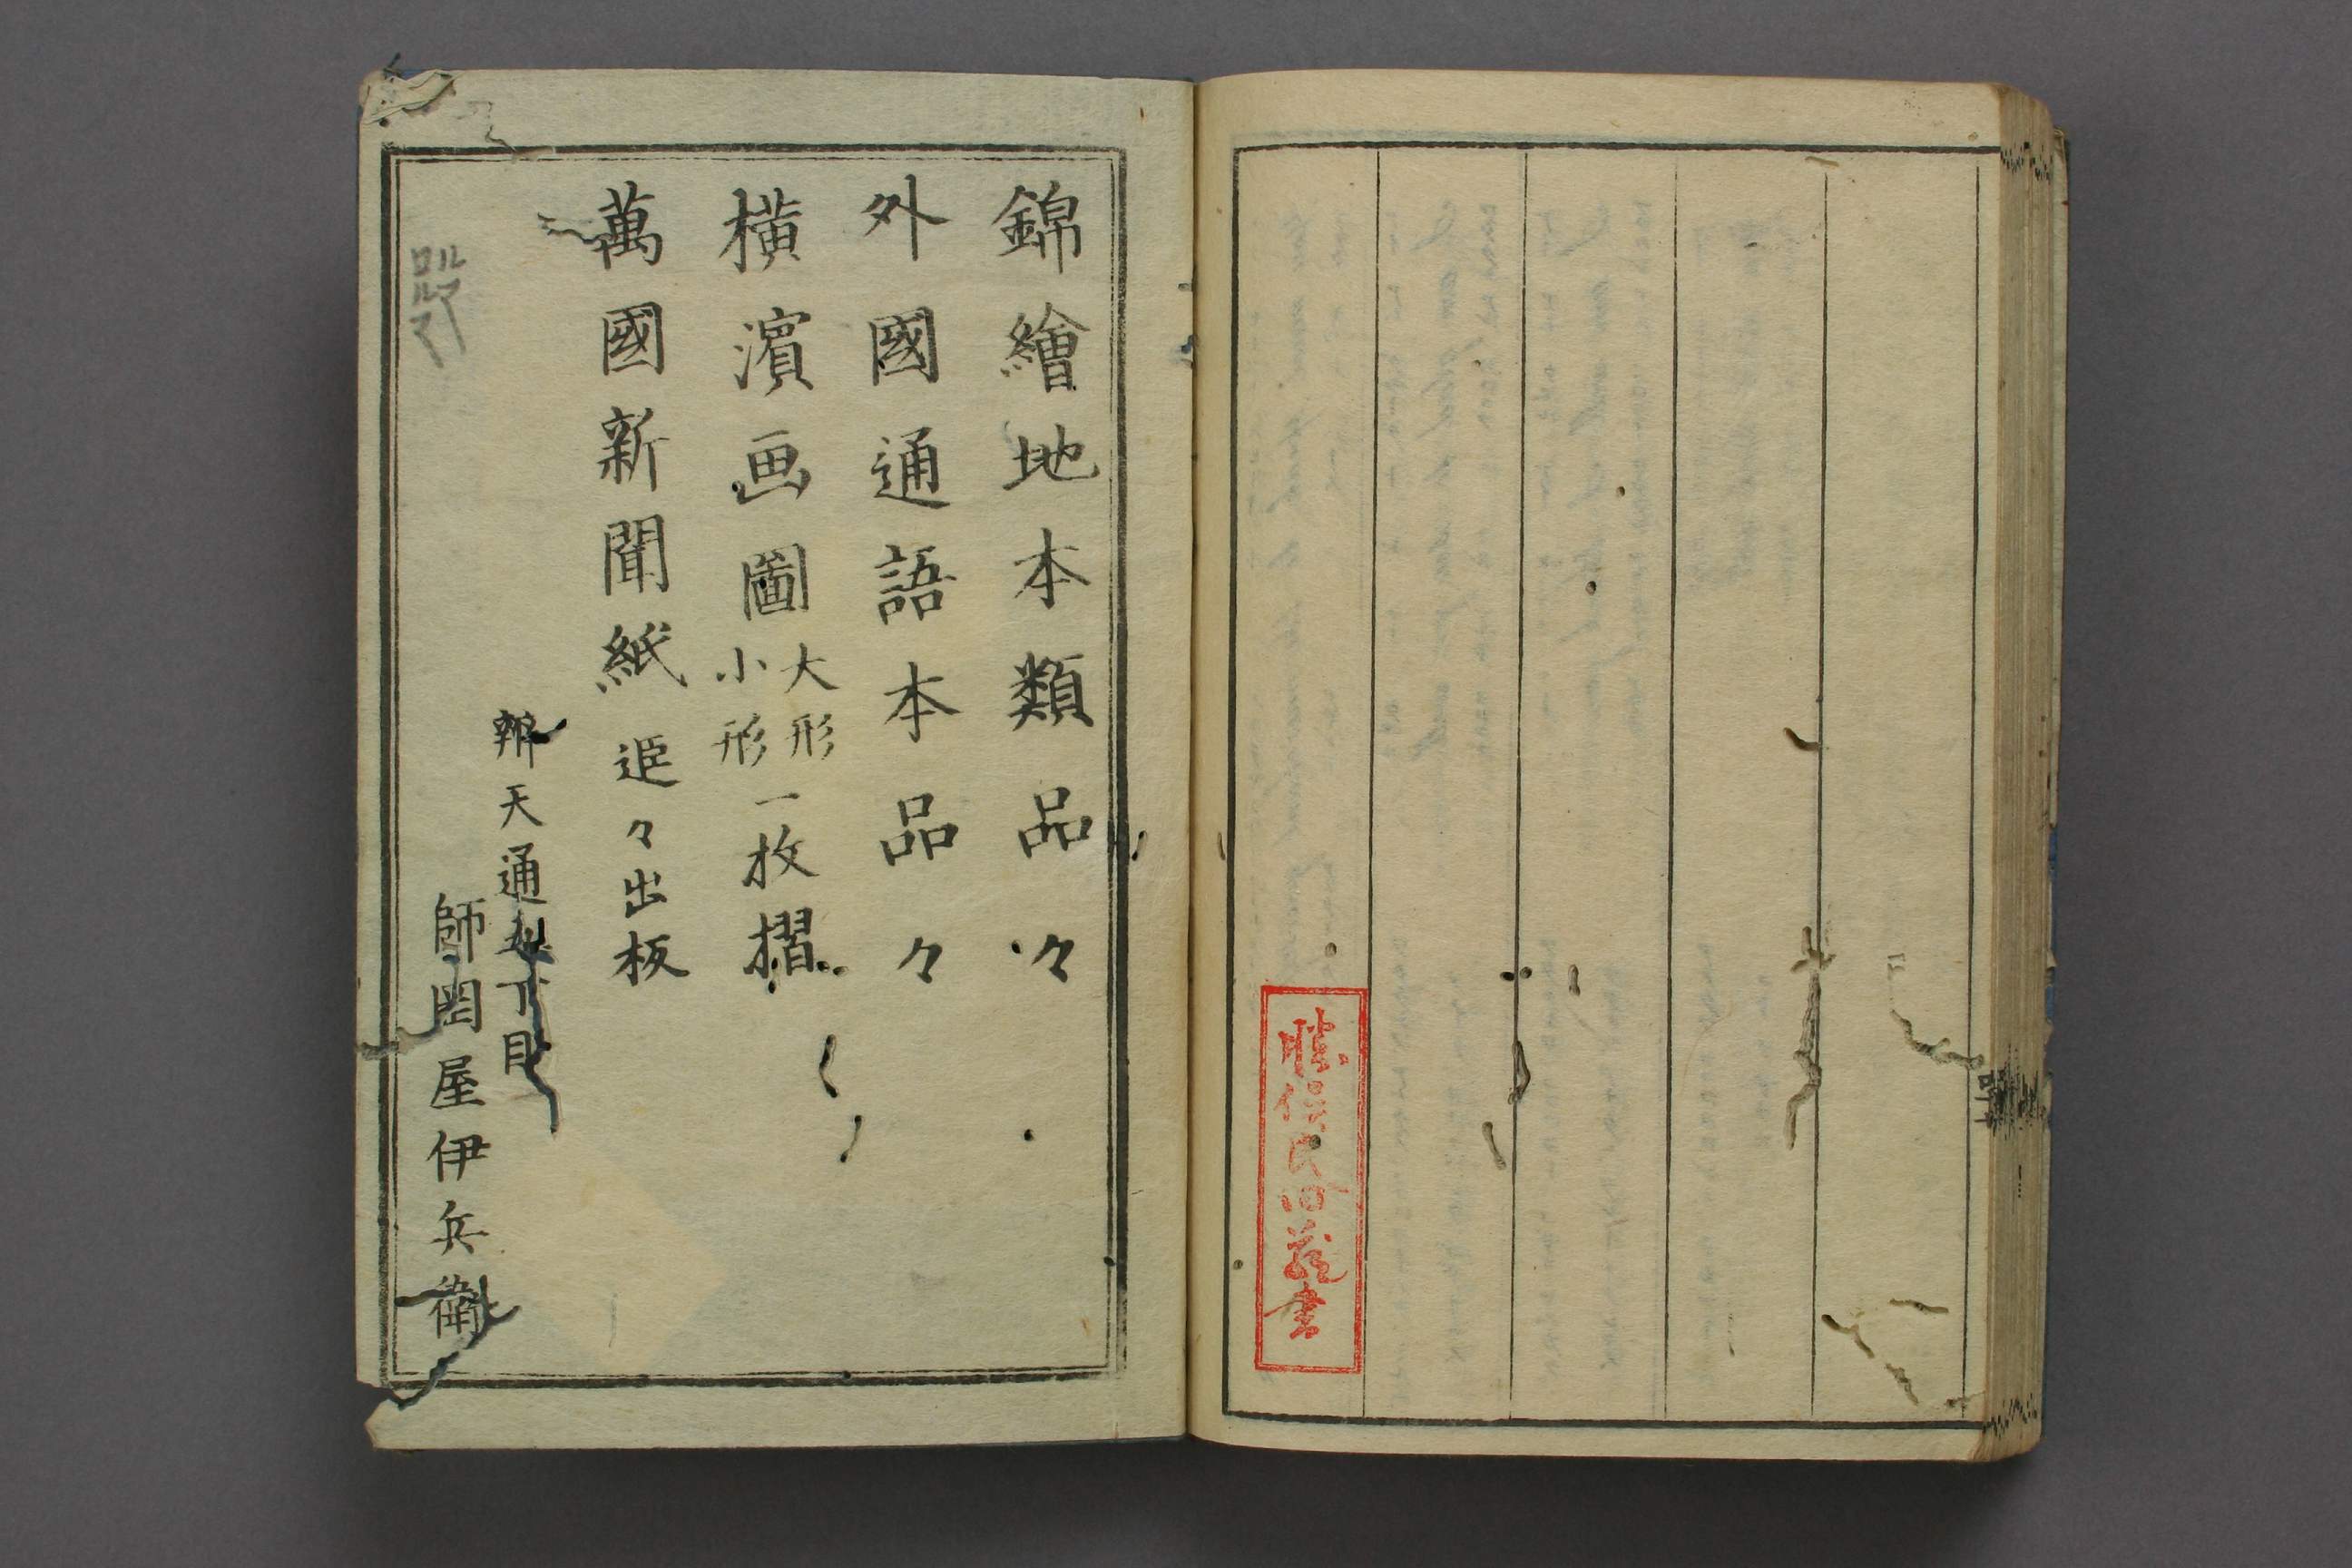 勝俣氏旧蔵書
錦繪地本類品々
外國通語本品々
横濱画圖大形小形一枚摺
萬國新聞紙追々出板
辨天通丁目
師岡屋伊兵衛